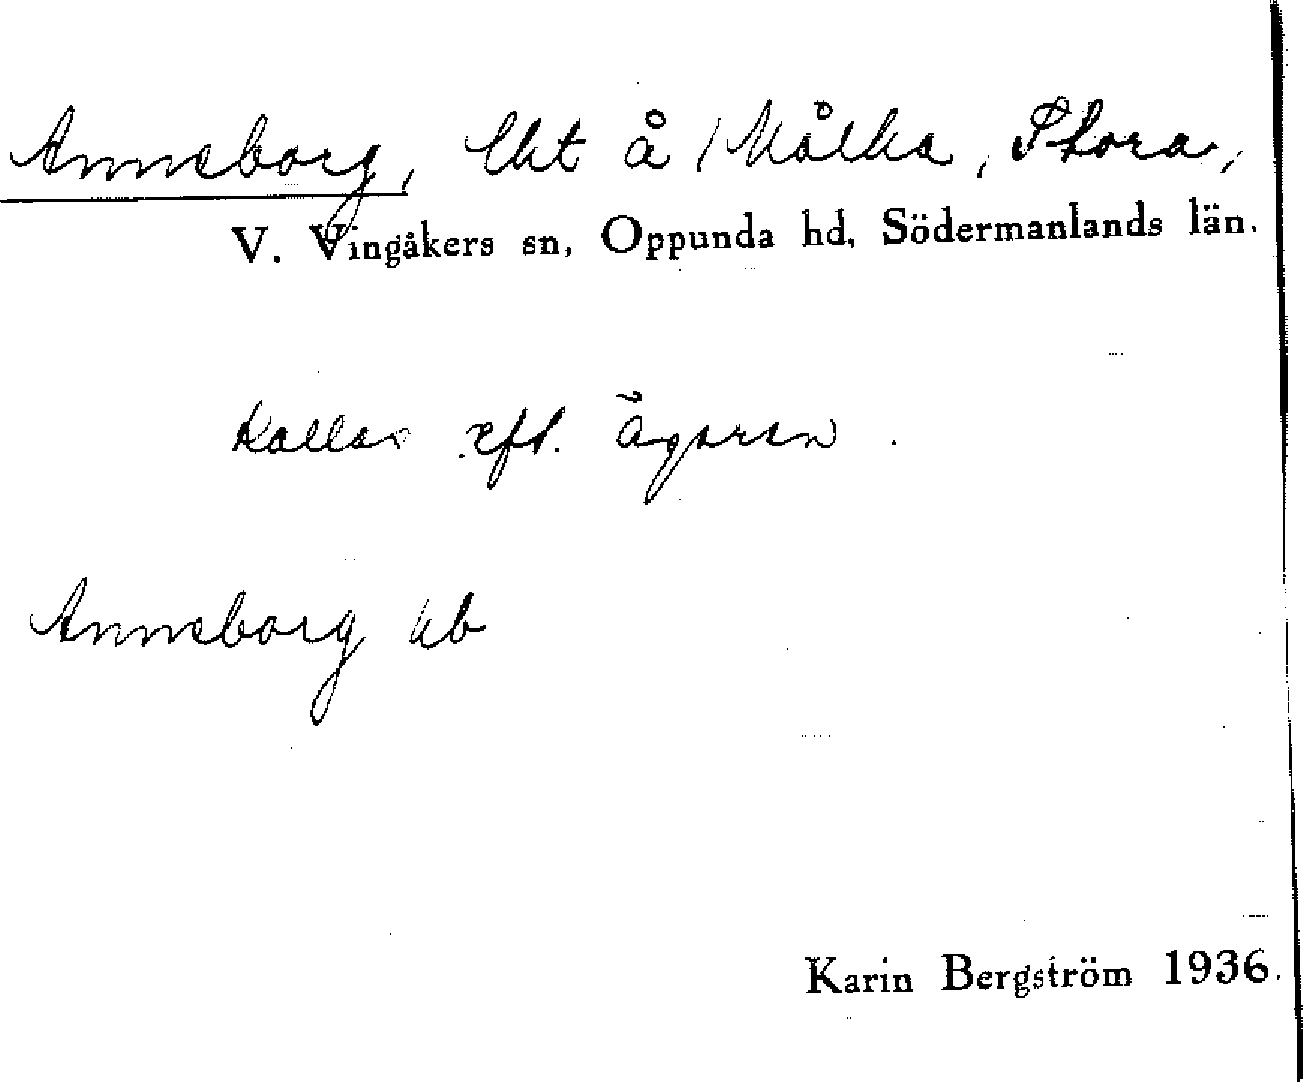 Anneborg, lht å Målka, Stora,
V. Vingåkers sn, Oppunda hd, Södermanlands län.
Kallas eft. ägaren.
Anneborg kb
Karin Bergström 1936.